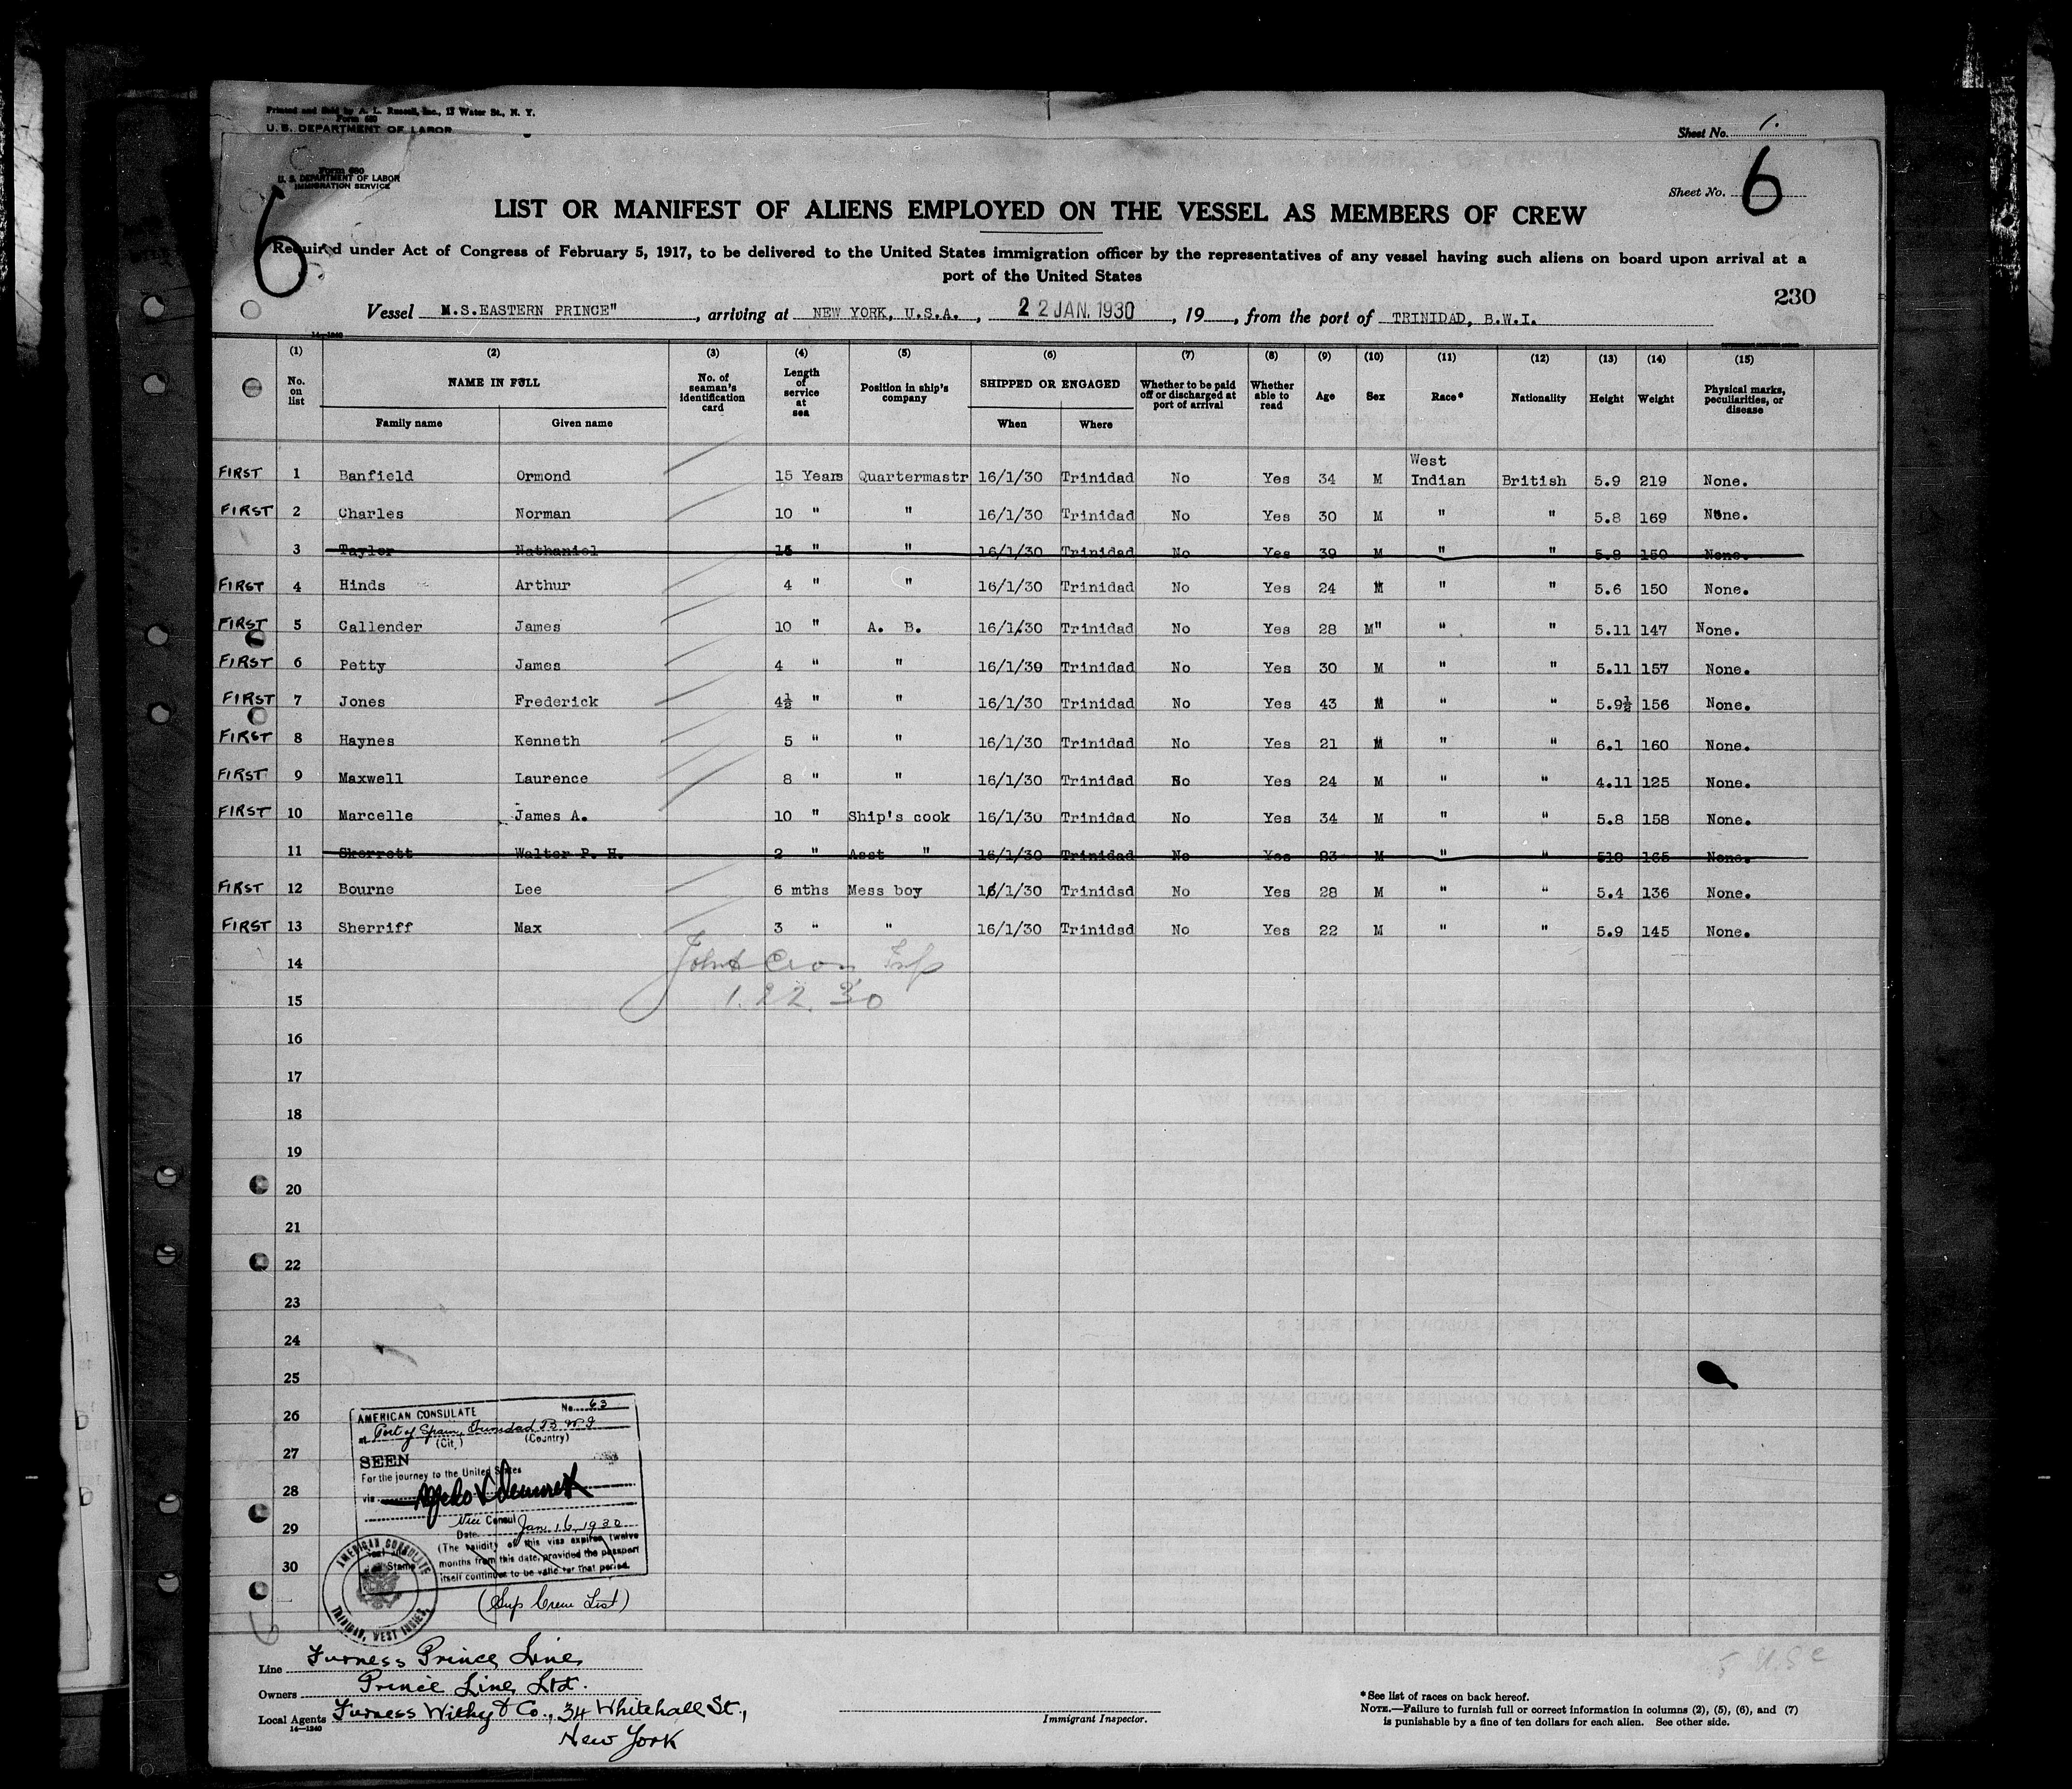 Printed and Sold by A. L. Russell, Inc., 17 Water St., N. Y.
Form 680
U. S. DEPARTMENT OF LABOR
Sheet No. 1.
Form 680
U. S. DEPARTMENT OF LABOR
IMMIGRATION SERVICE
Sheet No. 6
6
LIST OR MANIFEST OF ALIENS EMPLOYED ON THE VESSEL AS MEMBERS OF CREW
Required under Act of Congress of February 5, 1917, to be delivered to the United States immigration officer by the representatives of any vessel having such aliens on board upon arrival at a
port of the United States
230
Vessel M.S.EASTERN PRINCE", arriving at NEW YORK, U.S.A., 22 JAN. 1930, 19, from the port of TRINIDAD, B.W.I.
14—1240
(1) (2) (3) (4) (5) (6) (7) (8) (9) (10) (11) (12) (13) (14) (15)
No. on list NAME IN FULL No. of seaman's identification card Length of service at sea Position in ship's company SHIPPED OR ENGAGED Whether to be paid off or discharged at port of arrival Whether able to read Age Sex Race* Nationality Height Weight Physical marks, peculiarities, or disease
Family name Given name When Where
FIRST 1 Banfield Ormond 15 Years Quartermastr 16/1/30 Trinidad No Yes 34 M West Indian British 5.9 219 None.
FIRST 2 Charles Norman 10 " " 16/1/30 Trinidad No Yes 30 M " " 5.8 169 None.
3 Taylor Nathaniel 15 " " 16/1/30 Trinidad No Yes 39 M " " 5.8 150 None.
FIRST 4 Hinds Arthur 4 " " 16/1/30 Trinidad No Yes 24 M " " 5.6 150 None.
FIRST 5 Callender James 10 " A. B. 16/1/30 Trinidad No Yes 28 M" " " 5.11 147 None.
FIRST 6 Petty James 4 " " 16/1/30 Trinidad No Yes 30 M " " 5.11 157 None.
FIRST 7 Jones Frederick 4½ " " 16/1/30 Trinidad No Yes 43 M " " 5.9½ 156 None.
FIRST 8 Haynes Kenneth 5 " " 16/1/30 Trinidad No Yes 21 M " " 6.1 160 None.
FIRST 9 Maxwell Laurence 8 " " 16/1/30 Trinidad No Yes 24 M " " 4.11 125 None.
FIRST 10 Marcelle James A. 10 " Ship's cook 16/1/30 Trinidad No Yes 34 M " " 5.8 158 None.
11 Skerrett Walter P. H. 2 " Asst " 16/1/30 Trinidad No Yes 23 M " " 510 165 None.
FIRST 12 Bourne Lee 6 mths Mess boy 16/1/30 Trinidsd No Yes 28 M " " 5.4 136 None.
FIRST 13 Sherriff Max 3 " " 16/1/30 Trinidsd No Yes 22 M " " 5.9 145 None.
14
1.22.30
15
16
17
18
19
20
21
22
23
24
25
26
27
28
29
30
AMERICAN CONSULATE No. 63
at Port of Spain, Trinidad B.W.I.
(City) (Country)
SEEN
For the journey to the United States
via
Vice Consul
Date Jan. 16, 1930
(The validity of this visa expires twelve
months from this date, provided the passport
itself continues to be valid for that period.
AMERICAN CONSULATE
TRINIDAD, WEST INDIES
(Sup Crew List)
Line Furness Prince Line
Owners Prince Line Ltd.
Local Agents Furness Withy & Co., 34 Whitehall St.,
New York
14—1240
Immigrant Inspector.
5 USC
*See list of races on back hereof.
NOTE.—Failure to furnish full or correct information in columns (2), (5), (6), and (7)
is punishable by a fine of ten dollars for each alien. See other side.